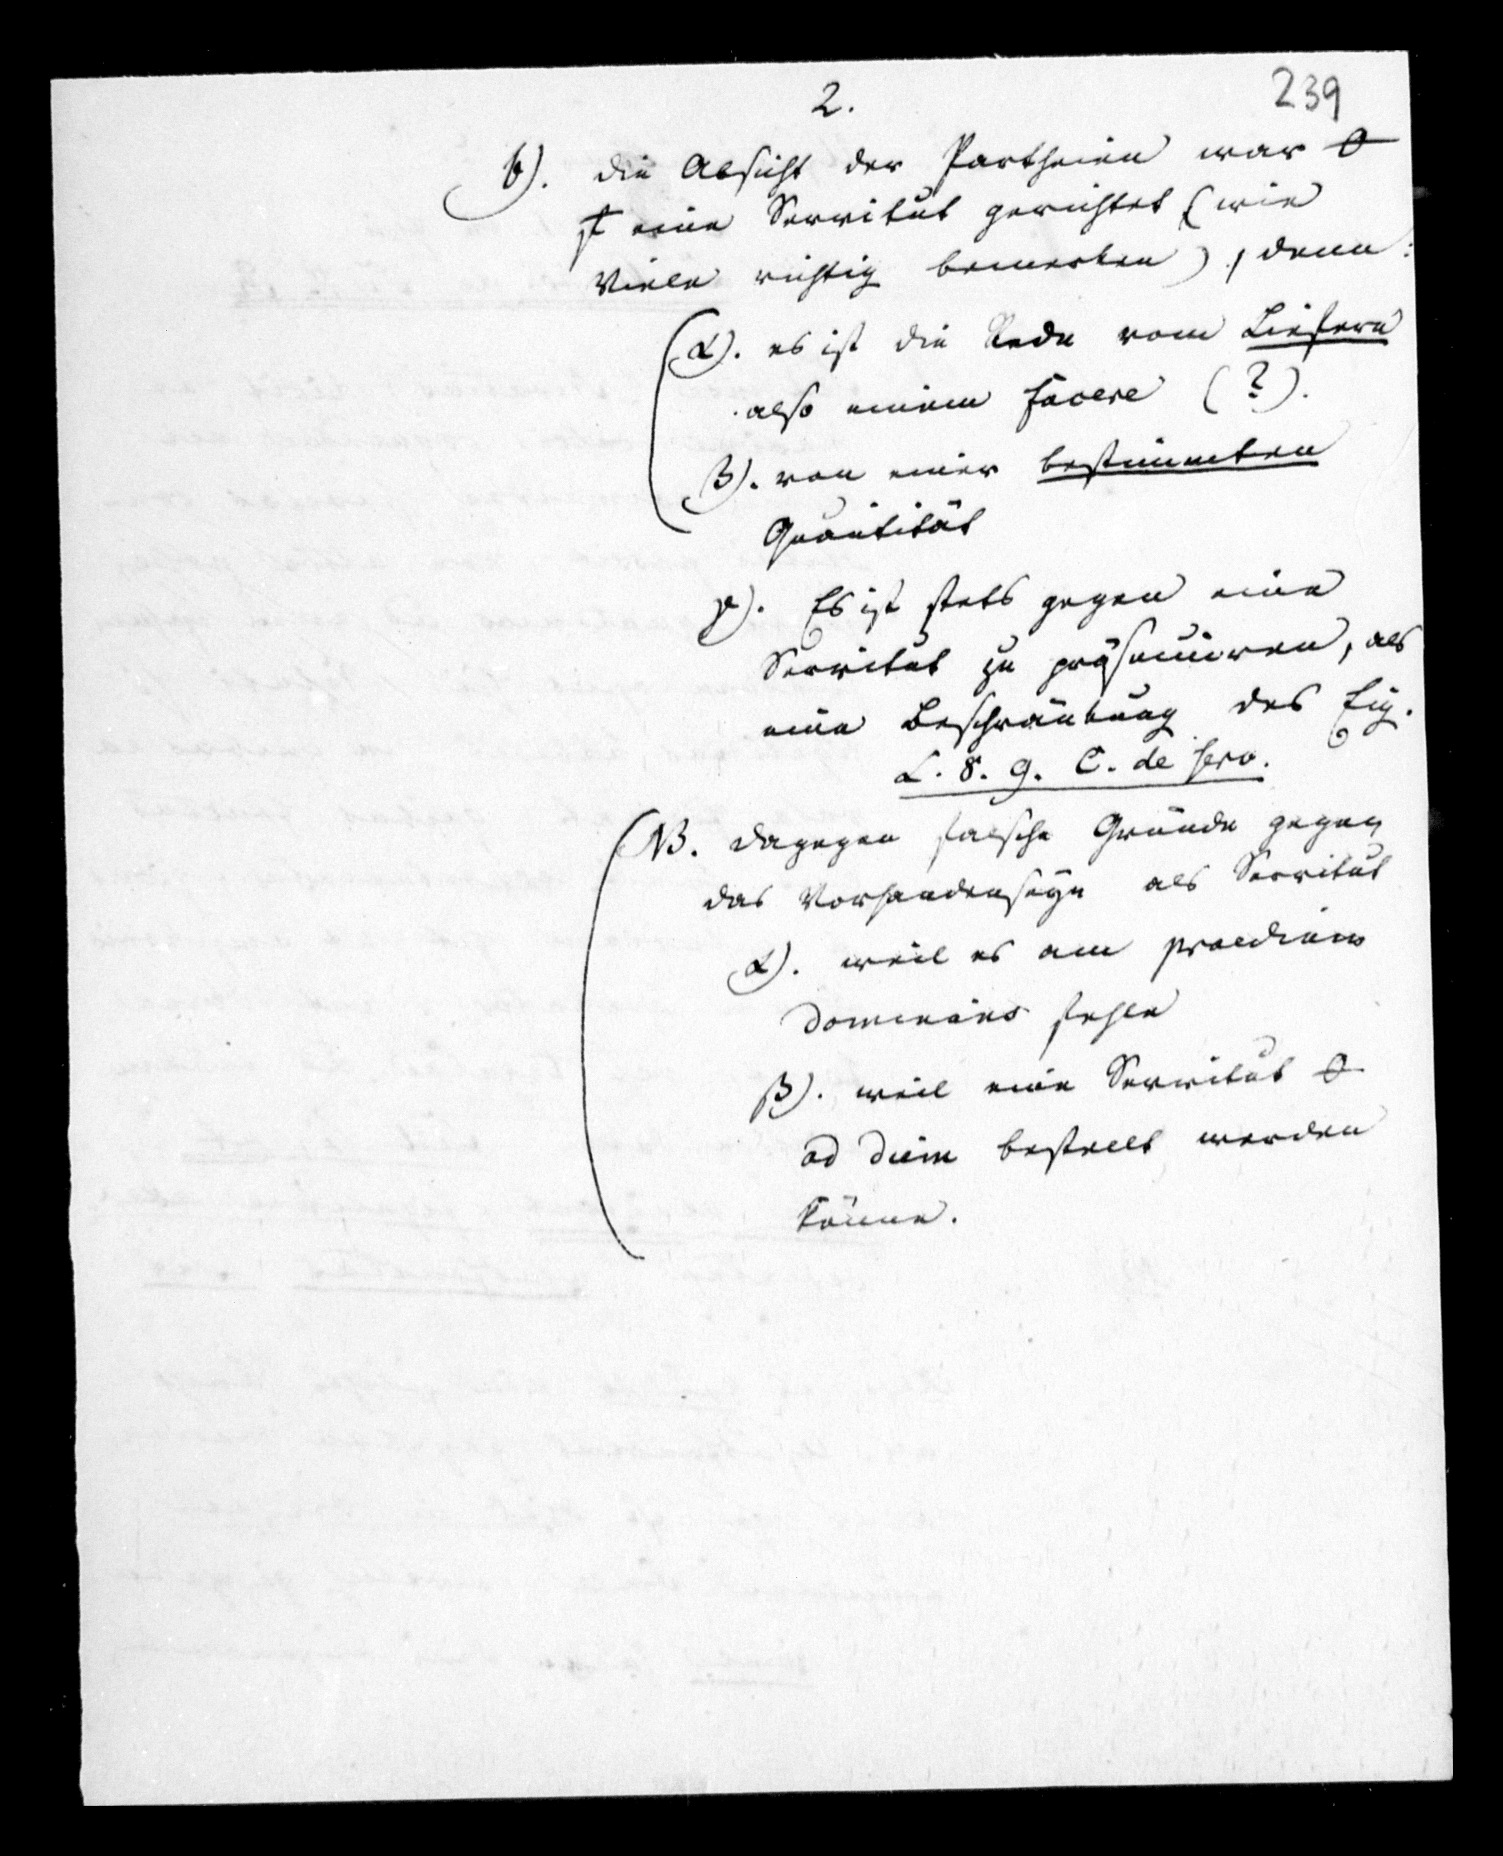 2.
239
b). die Absicht der Partheien war 0
eine Servitut gerichtet (wie
Viele richtig bemerken), denn:
α). es ist die Rede vom Liefern
also einem facere (?).
β). von einer bestimmten
Quantität
γ). Es ist stets gegen eine
Servitut zu präsumiren, als
eine Beschränkung des Eig.
L. 8. 9. C. de serv.
NB. dagegen falsche Gründe gegen
das Vorhandenseyn als Servitut
α). weil es am praedium
dominans fehle
β). weil eine Servitut 0
ad diem bestellt werden
könne.